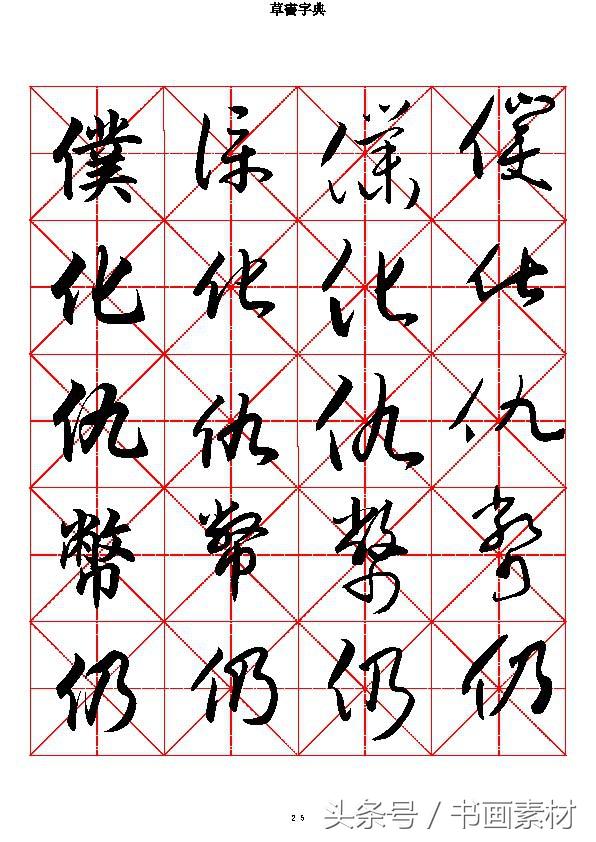 草書字典
僕 僕 僕 僕
化 化 化 化
仇 仇 仇 仇
幣 幣 幣 幣
仍 仍 仍 仍
25
头条号 / 书画素材